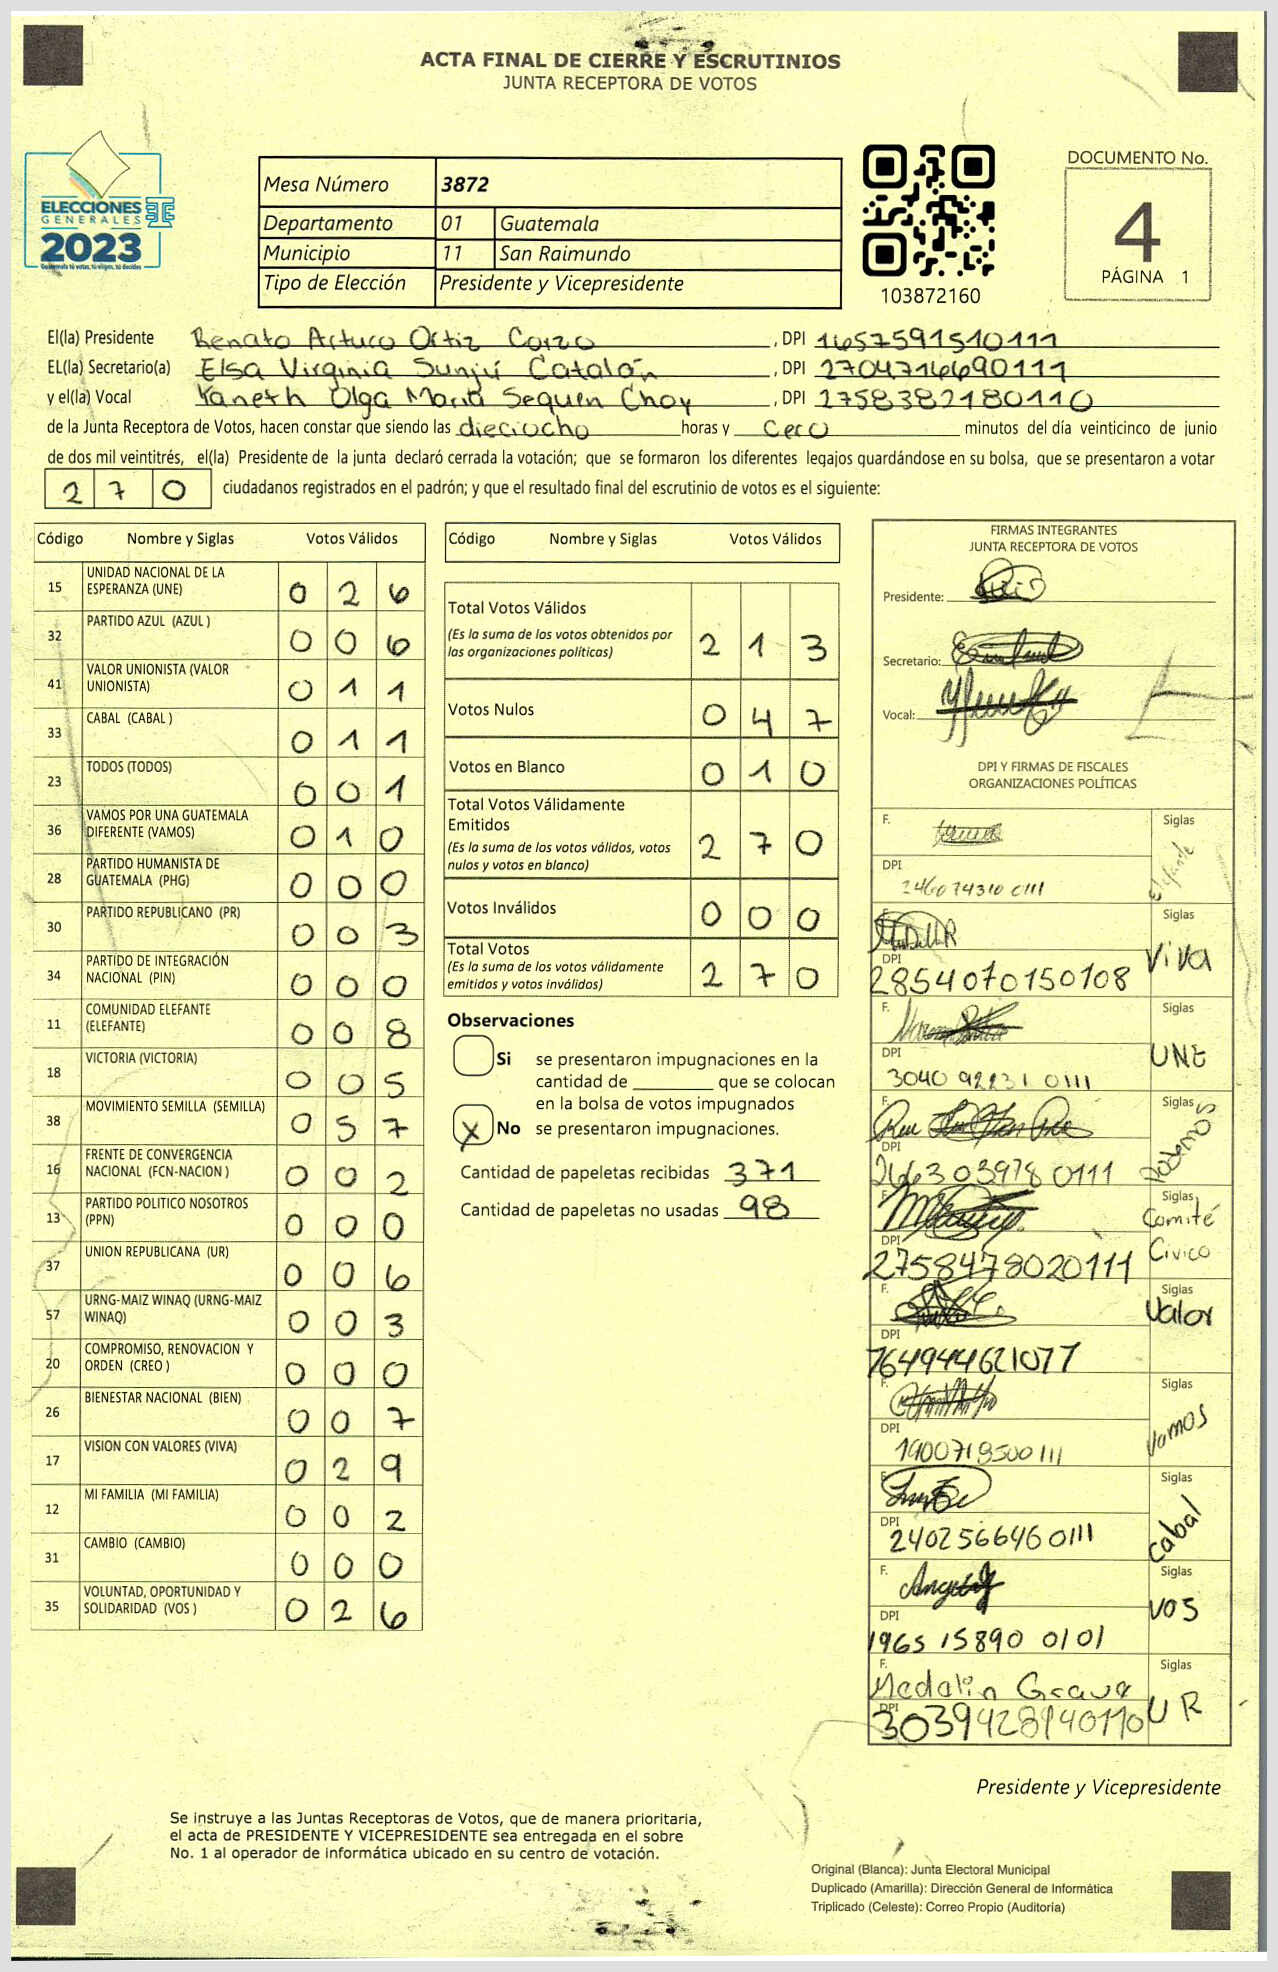 ACTA FINAL DE CIERRE Y ESCRUTINIOS
JUNTA RECEPTORA DE VOTOS
ELECCIONES
GENERALES
2023
Guatemala tú votas, tú eliges, tú decides
Mesa Número 3872
Departamento 01 Guatemala
Municipio 11 San Raimundo
Tipo de Elección Presidente y Vicepresidente
103872160
DOCUMENTO No.
4
PÁGINA 1
El(la) Presidente Renato Arturo Ortiz Corzo, DPI 1657591510111
EL(la) Secretario(a) Elsa Virginia Sunjú Catalán, DPI 2704716690111
y el(la) Vocal Yaneth Olga María Sequen Choy, DPI 2758382180110
de la Junta Receptora de Votos, hacen constar que siendo las dieciocho horas y cero minutos del día veinticinco de junio
de dos mil veintitrés, el(la) Presidente de la junta declaró cerrada la votación; que se formaron los diferentes legajos guardándose en su bolsa, que se presentaron a votar
270 ciudadanos registrados en el padrón; y que el resultado final del escrutinio de votos es el siguiente:
Código Nombre y Siglas Votos Válidos
15 UNIDAD NACIONAL DE LA ESPERANZA (UNE) 0 2 6
32 PARTIDO AZUL (AZUL ) 0 0 6
41 VALOR UNIONISTA (VALOR UNIONISTA) 0 1 1
33 CABAL (CABAL ) 0 1 1
23 TODOS (TODOS) 0 0 1
36 VAMOS POR UNA GUATEMALA DIFERENTE (VAMOS) 0 1 0
28 PARTIDO HUMANISTA DE GUATEMALA (PHG) 0 0 0
30 PARTIDO REPUBLICANO (PR) 0 0 3
34 PARTIDO DE INTEGRACIÓN NACIONAL (PIN) 0 0 0
11 COMUNIDAD ELEFANTE (ELEFANTE) 0 0 8
18 VICTORIA (VICTORIA) 0 0 5
38 MOVIMIENTO SEMILLA (SEMILLA) 0 5 7
16 FRENTE DE CONVERGENCIA NACIONAL (FCN-NACION ) 0 0 2
13 PARTIDO POLITICO NOSOTROS (PPN) 0 0 0
37 UNION REPUBLICANA (UR) 0 0 6
57 URNG-MAIZ WINAQ (URNG-MAIZ WINAQ) 0 0 3
20 COMPROMISO, RENOVACION Y ORDEN (CREO ) 0 0 0
26 BIENESTAR NACIONAL (BIEN) 0 0 7
17 VISION CON VALORES (VIVA) 0 2 9
12 MI FAMILIA (MI FAMILIA) 0 0 2
31 CAMBIO (CAMBIO) 0 0 0
35 VOLUNTAD, OPORTUNIDAD Y SOLIDARIDAD (VOS ) 0 2 6
Código Nombre y Siglas Votos Válidos
Total Votos Válidos 2 1 3
(Es la suma de los votos obtenidos por
las organizaciones políticas)
Votos Nulos 0 4 7
Votos en Blanco 0 1 0
Total Votos Válidamente
Emitidos 2 7 0
(Es la suma de los votos válidos, votos
nulos y votos en blanco)
Votos Inválidos 0 0 0
Total Votos 2 7 0
(Es la suma de los votos válidamente
emitidos y votos inválidos)
Observaciones
Si se presentaron impugnaciones en la
cantidad de ________ que se colocan
en la bolsa de votos impugnados
X No se presentaron impugnaciones.
Cantidad de papeletas recibidas 371
Cantidad de papeletas no usadas 98
FIRMAS INTEGRANTES
JUNTA RECEPTORA DE VOTOS
Presidente:
Secretario:
Vocal:
DPI Y FIRMAS DE FISCALES
ORGANIZACIONES POLÍTICAS
F. Siglas Elefante
DPI 2460 74310 0111
F. Siglas Viva
DPI 2854070150108
F. Siglas UNE
DPI 3040 92231 0111
F. Siglas Podemos
DPI 2663 03978 0111
F. Siglas Comité Cívico
DPI 2758478020111
F. Siglas Valor
DPI 7649944621077
F. Siglas Vamos
DPI 1900718500111
F. Siglas Cabal
DPI 2402566460111
F. Siglas VOS
DPI 1965 15890 0101
F. Medalin Siglas UR
DPI 3039428940110
Presidente y Vicepresidente
Se instruye a las Juntas Receptoras de Votos, que de manera prioritaria,
el acta de PRESIDENTE Y VICEPRESIDENTE sea entregada en el sobre
No. 1 al operador de informática ubicado en su centro de votación.
Original (Blanca): Junta Electoral Municipal
Duplicado (Amarilla): Dirección General de Informática
Triplicado (Celeste): Correo Propio (Auditoría)